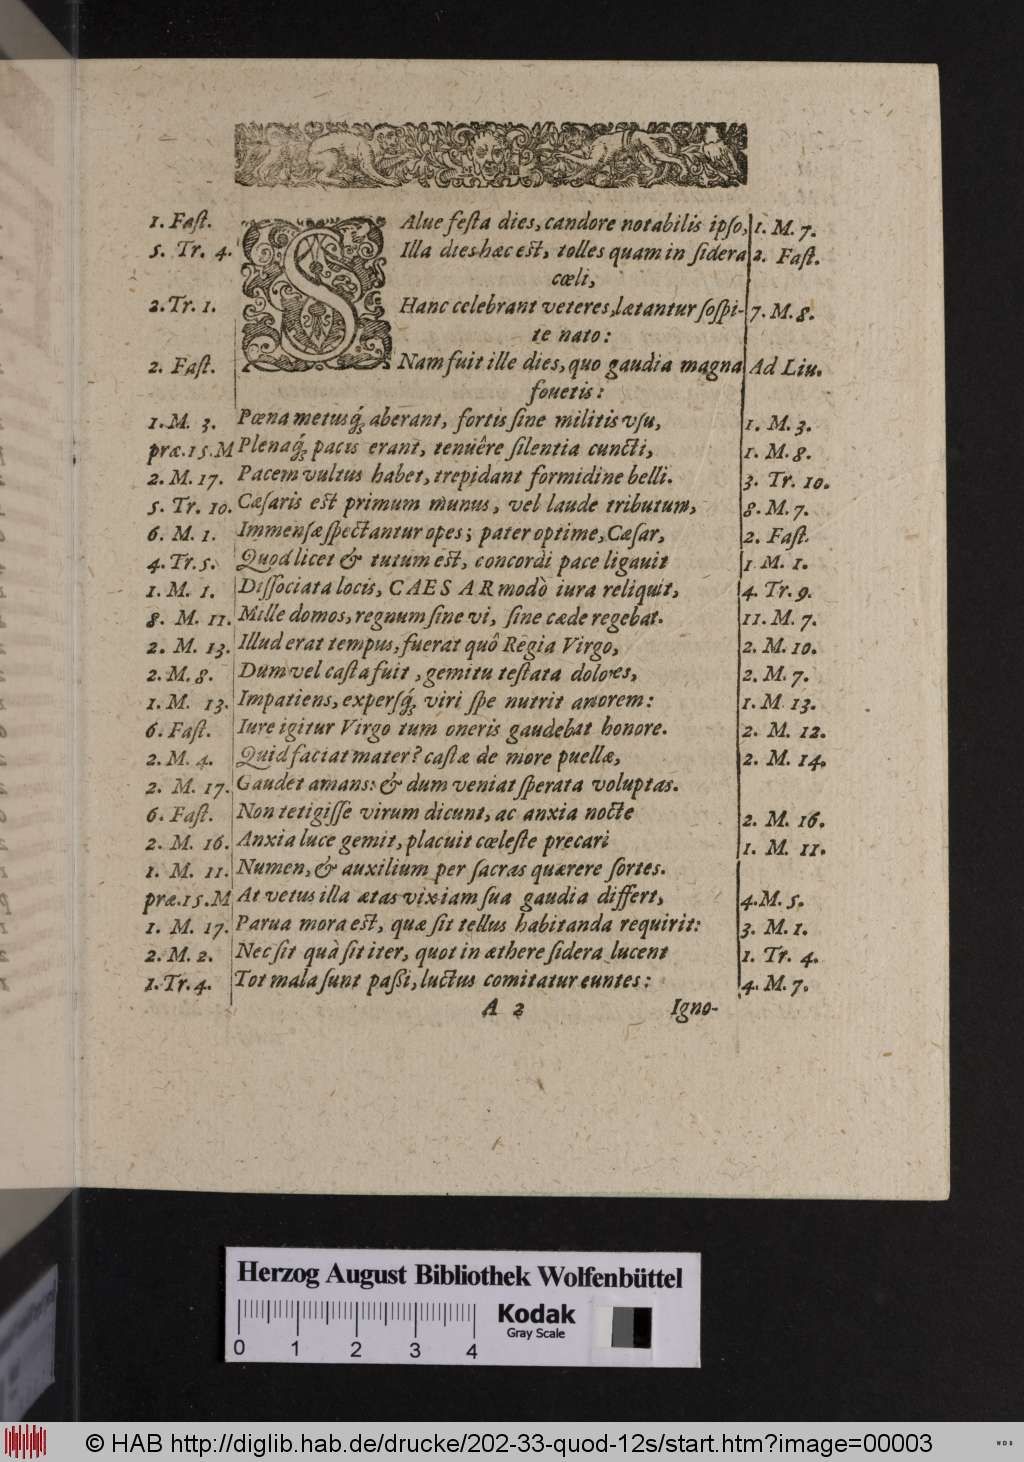 1. Faſt. SAlue feſta dies, candore notabilis ipſo, 1. M. 7.
5. Tr. 4. Illa dies hæc eſt, tolles quam in ſidera 2. Faſt.
cœli,
2. Tr. 1. Hanc celebrant veteres, lætantur ſoſpi- 7. M. 8.
te nato:
2. Faſt. Nam fuit ille dies, quo gaudia magna Ad Liu.
fouetis:
1. M. 3. Pœna metusq́; aberant, fortis ſine militis vſu, 1. M. 3.
præ. 15. M Plenaq́; pacis erant, tenuêre ſilentia cuncti, 1. M. 8.
2. M. 17. Pacem vultus habet, trepidant formidine belli. 3. Tr. 10.
5. Tr. 10. Cæſaris eſt primum munus, vel laude tributum, 8. M. 7.
6. M. 1. Immenſæ ſpectantur opes; pater optime, Cæſar, 2. Faſt.
4. Tr. 5. Quod licet & tutum eſt, concordi pace ligauit 1. M. 1.
1. M. 1. Diſſociata locis, CAESAR modò iura reliquit, 4. Tr. 9.
8. M. 11. Mille domos, regnum ſine vi, ſine cæde regebat. 11. M. 7.
2. M. 13. Illud erat tempus, fuerat quô Regia Virgo, 2. M. 10.
2. M. 8. Dum vel caſta fuit, gemitu teſtata dolores, 2. M. 7.
1. M. 13. Impatiens, expersq́; viri ſpe nutrit amorem: 1. M. 13.
6. Faſt. Iure igitur Virgo tum oneris gaudebat honore. 2. M. 12.
2. M. 4. Quid faciat mater? caſtæ de more puellæ, 2. M. 14.
2. M. 17. Gaudet amans: & dum veniat ſperata voluptas.
6. Faſt. Non tetigiſſe virum dicunt, ac anxia nocte 2. M. 16.
2. M. 16. Anxia luce gemit, placuit cœleſte precari 1. M. 11.
1. M. 11. Numen, & auxilium per ſacras quærere ſortes.
præ. 15. M At vetus illa ætas vix iam ſua gaudia differt, 4. M. 5.
1. M. 17. Parua mora eſt, quæ ſit tellus habitanda requirit: 3. M. 1.
2. M. 2. Nec ſit quà ſit iter, quot in æthere ſidera lucent 1. Tr. 4.
1. Tr. 4. Tot mala ſunt paßi, luctus comitatur euntes: 4. M. 7.
A 2 Igno-
Herzog August Bibliothek Wolfenbüttel
Kodak
Gray Scale
0 1 2 3 4
© HAB http://diglib.hab.de/drucke/202-33-quod-12s/start.htm?image=00003